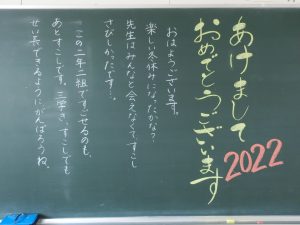 あけまして
おめでとうございます
2022
おはようございます。
楽しい冬休みになったかな?
先生はみんなと会えなくて、すこし
さびしかったです…。
この二年二組ですごせるのも、
あとすこしです。三学き、すこしでも
せい長できるようにがんばろうね。